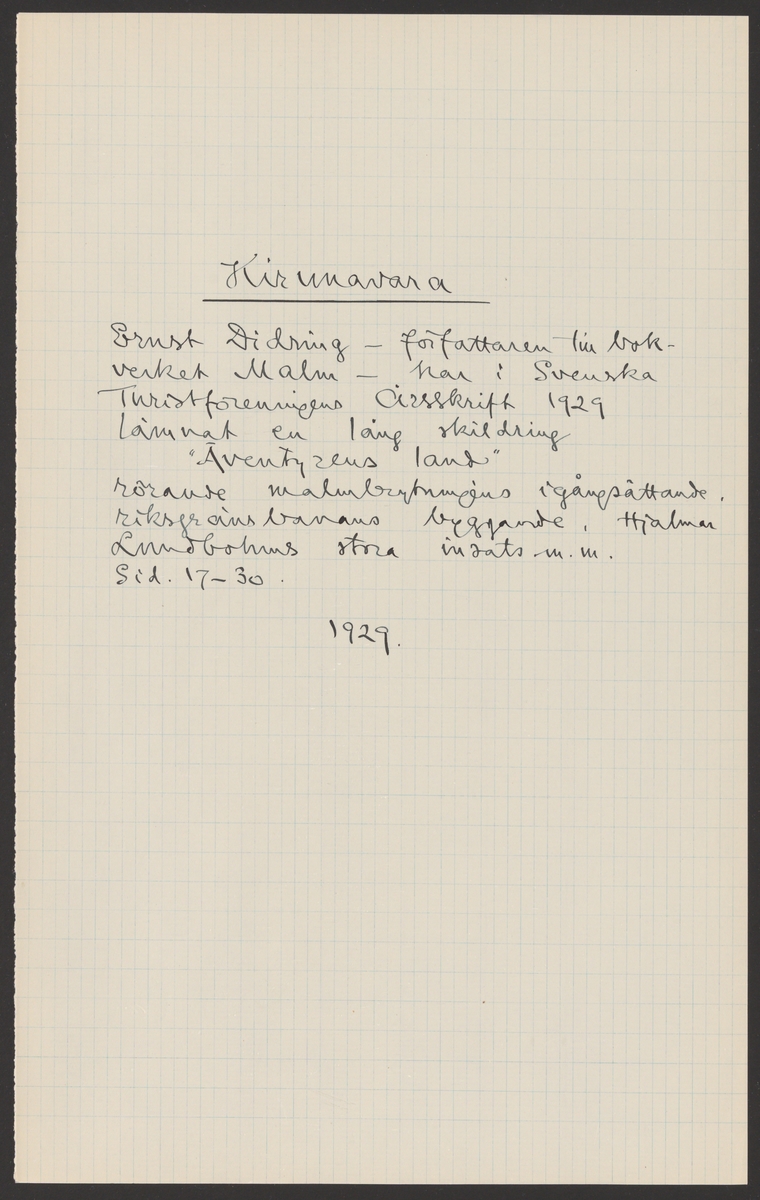 Kirunavara
Ernst Didring – författaren till bok-
verket Malm – har i Svenska
Turistföreningens Årsskrift 1929
lämnat en lång skildring
"Äventyrens land"
rörande malmbrytningens igångsättande,
riksgränsbanans byggande, Hjalmar
Lundbohms stora insats m.m.
Sid. 17–30.
1929.